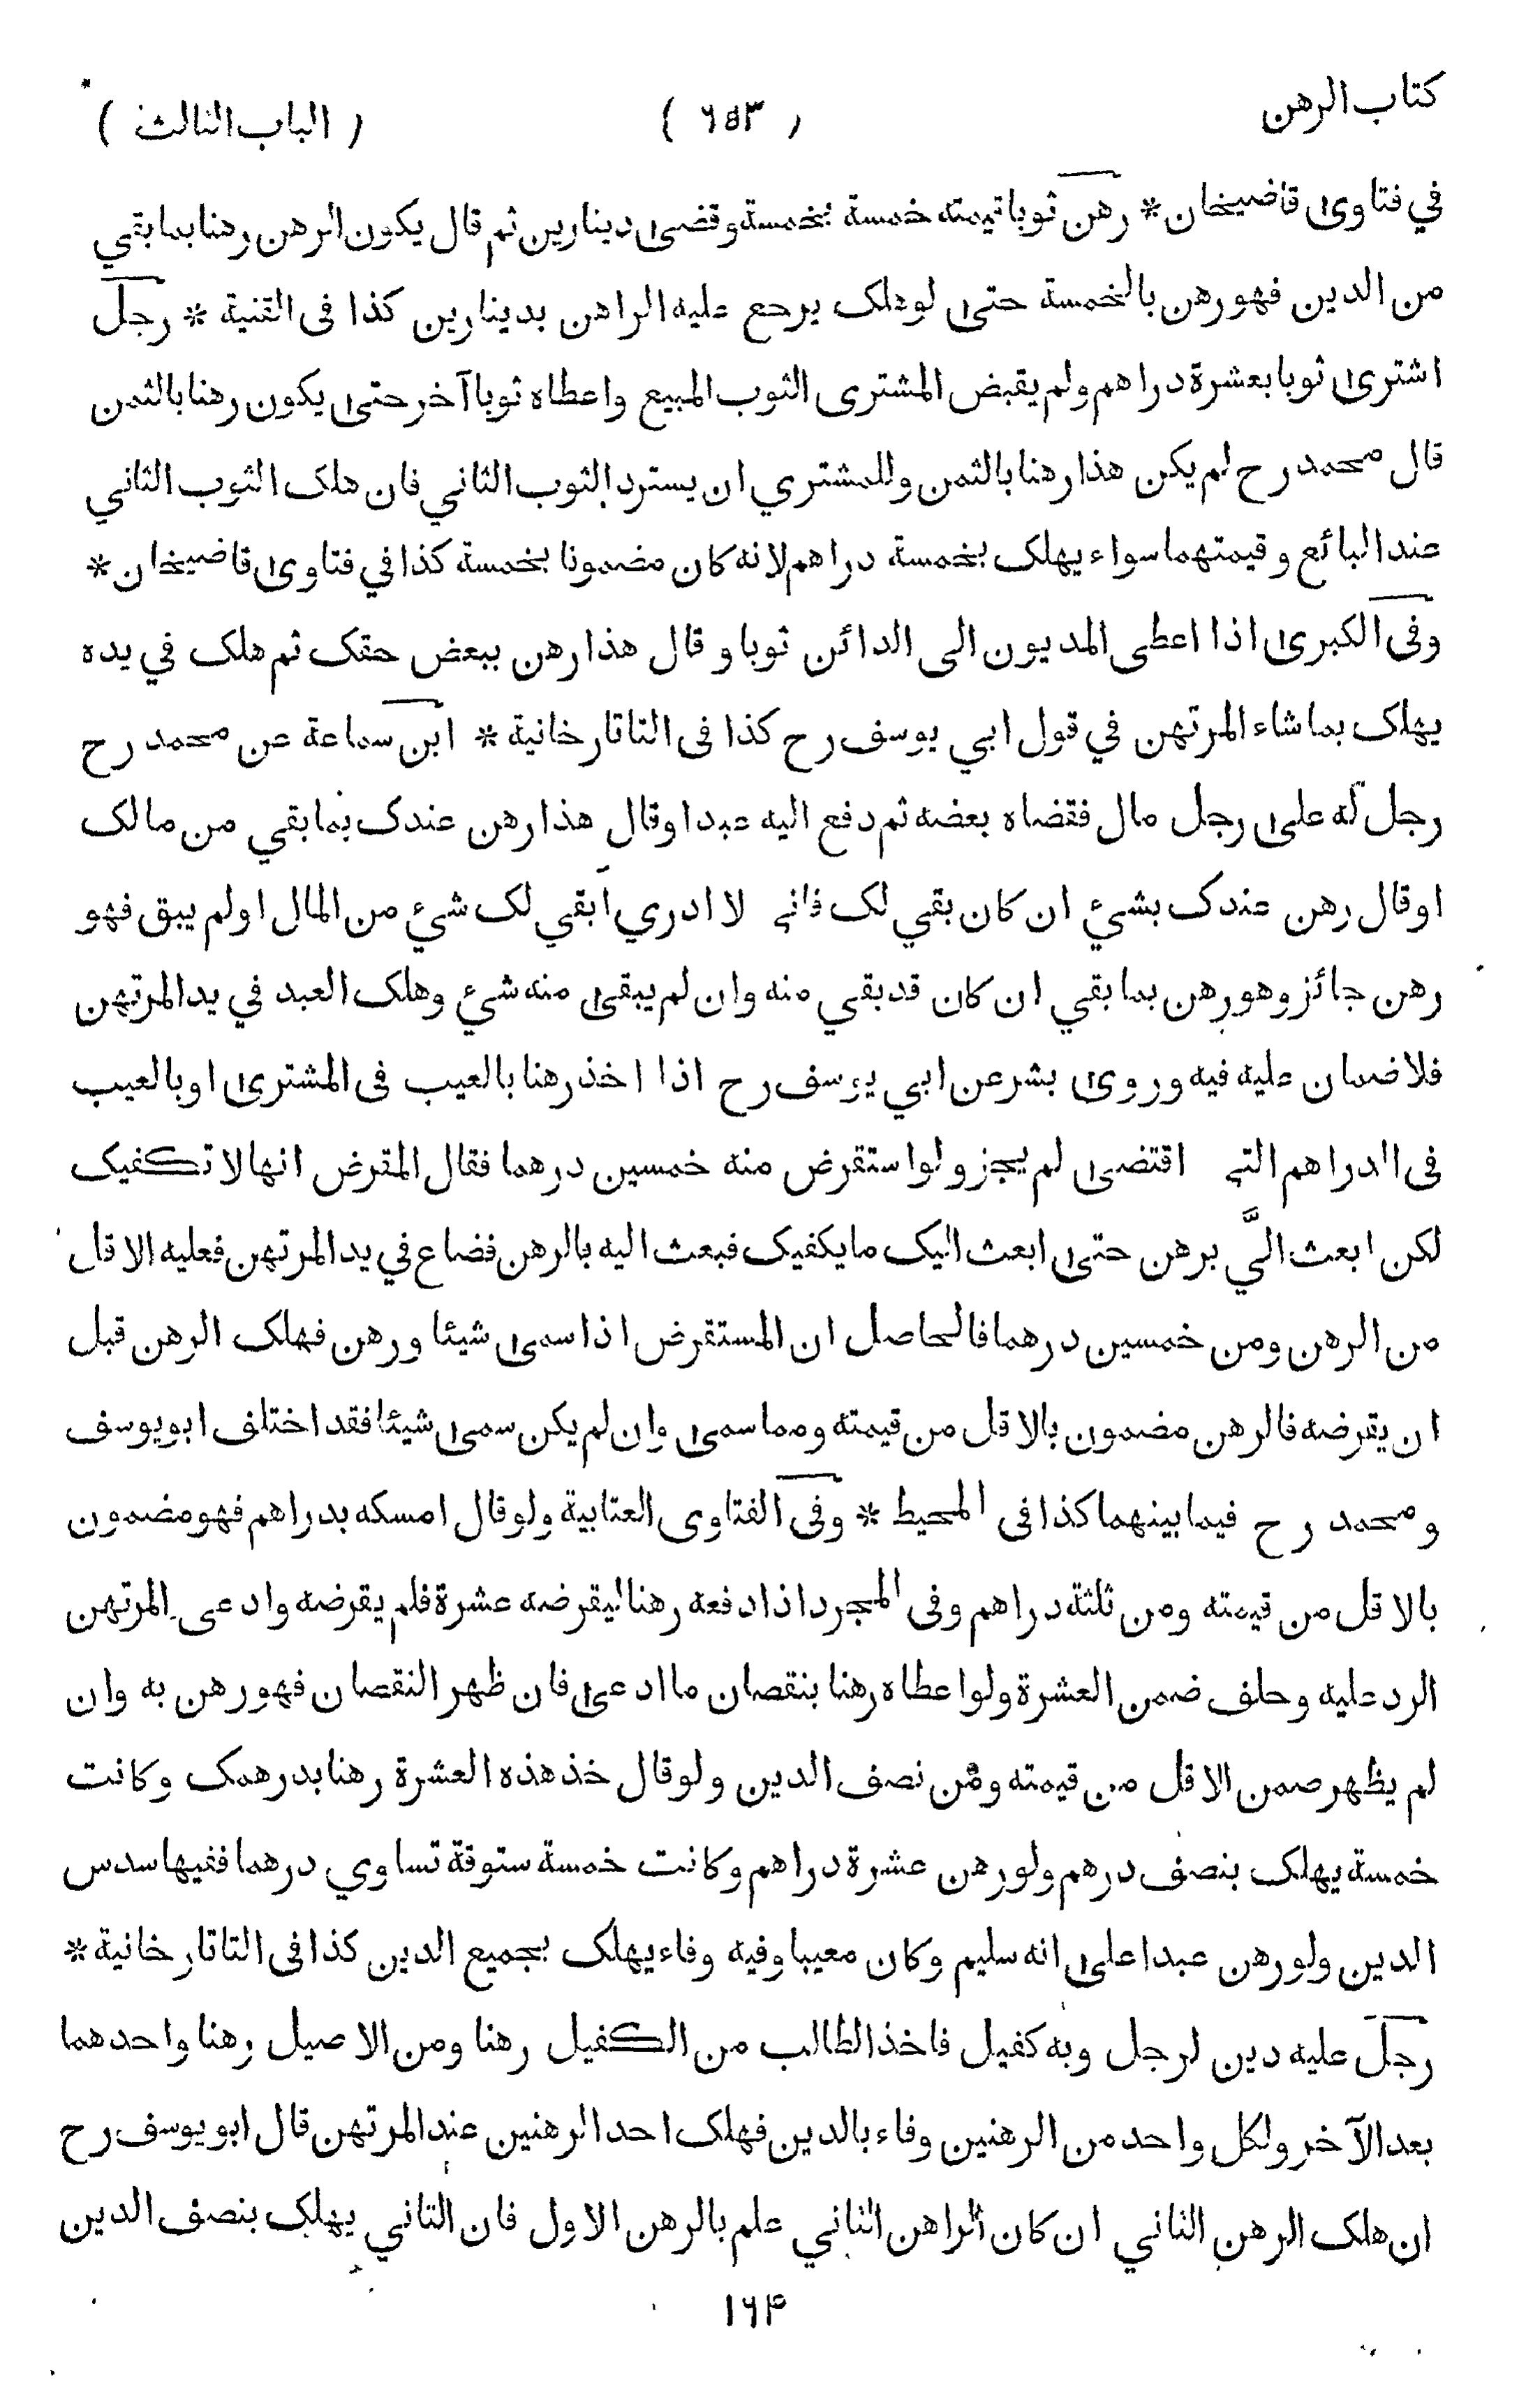 كتاب الرهن ( ٦٥٣ ) ( الباب الثالث )
في فتاوى قاضيخان * رهن ثوبا قيمته خمسة بخمسة وقضى دينارين ثم قال يكون الرهن رهنا بما بقي
من الدين فهو رهن بالخمسة حتى لو هلك يرجع عليه الراهن بدينارين كذا فى القنية * رجل
اشترى ثوبا بعشرة دراهم ولم يقبض المشترى الثوب المبيع واعطاه ثوبا آخر حتى يكون رهنا بالثمن
قال محمد رح لم يكن هذا رهنا بالثمن وللمشتري ان يسترد الثوب الثاني فان هلك الثوب الثاني
عند البائع وقيمتهما سواء يهلك بخمسة دراهم لانه كان مضمونا بخمسة كذا في فتاوى قاضيخان *
وفى الكبرى اذا اعطى المديون الى الدائن ثوبا وقال هذا رهن ببعض حقك ثم هلك في يده
يهلك بما شاء المرتهن في قول ابي يوسف رح كذا فى التاتارخانية * ابن سماعة عن محمد رح
رجل له على رجل مال فقضاه بعضه ثم دفع اليه عبدا وقال هذا رهن عندك بما بقي من مالك
او قال رهن عندك بشيء ان كان بقي لك فاني لا ادري أبقي لك شيء من المال او لم يبق فهو
رهن جائز وهو رهن بما بقي ان كان قد بقي منه وان لم يبقى منه شيء وهلك العبد في يد المرتهن
فلا ضمان عليه فيه وروى بشر عن ابي يوسف رح اذا اخذ رهنا بالعيب فى المشترى او بالعيب
فى الدراهم التي اقتضى لم يجز ولو استقرض منه خمسين درهما فقال المقرض انها لا تكفيك
لكن ابعث اليَّ برهن حتى ابعث اليك ما يكفيك فبعث اليه بالرهن فضاع في يد المرتهن فعليه الاقل
من الرهن ومن خمسين درهما فالحاصل ان المستقرض اذا سمى شيئا ورهن فهلك الرهن قبل
ان يقرضه فالرهن مضمون بالاقل من قيمته ومما سمى وان لم يكن سمى شيئا فقد اختلف ابو يوسف
ومحمد رح فيما بينهما كذا فى المحيط * وفى الفتاوى العتابية ولو قال امسكه بدراهم فهو مضمون
بالاقل من قيمته ومن ثلثة دراهم وفى المجرد اذا دفعه رهنا ليقرضه عشرة فلم يقرضه وادعى المرتهن
الرد عليه وحلف ضمن العشرة ولو اعطاه رهنا بنقصان ما ادعى فان ظهر النقصان فهو رهن به وان
لم يظهر ضمن الاقل من قيمته ومن نصف الدين ولو قال خذ هذه العشرة رهنا بدرهمك وكانت
خمسة يهلك بنصف درهم ولو رهن عشرة دراهم وكانت خمسة ستوقة تساوي درهما ففيها سدس
الدين ولو رهن عبدا على انه سليم وكان معيبا وفيه وفاء يهلك بجميع الدين كذا فى التاتارخانية *
رجل عليه دين لرجل وبه كفيل فاخذ الطالب من الكفيل رهنا ومن الاصيل رهنا واحدهما
بعد الآخر ولكل واحد من الرهنين وفاء بالدين فهلك احد الرهنين عند المرتهن قال ابو يوسف رح
ان هلك الرهن الثاني ان كان الراهن الثاني علم بالرهن الاول فان الثاني يهلك بنصف الدين
١٦٤